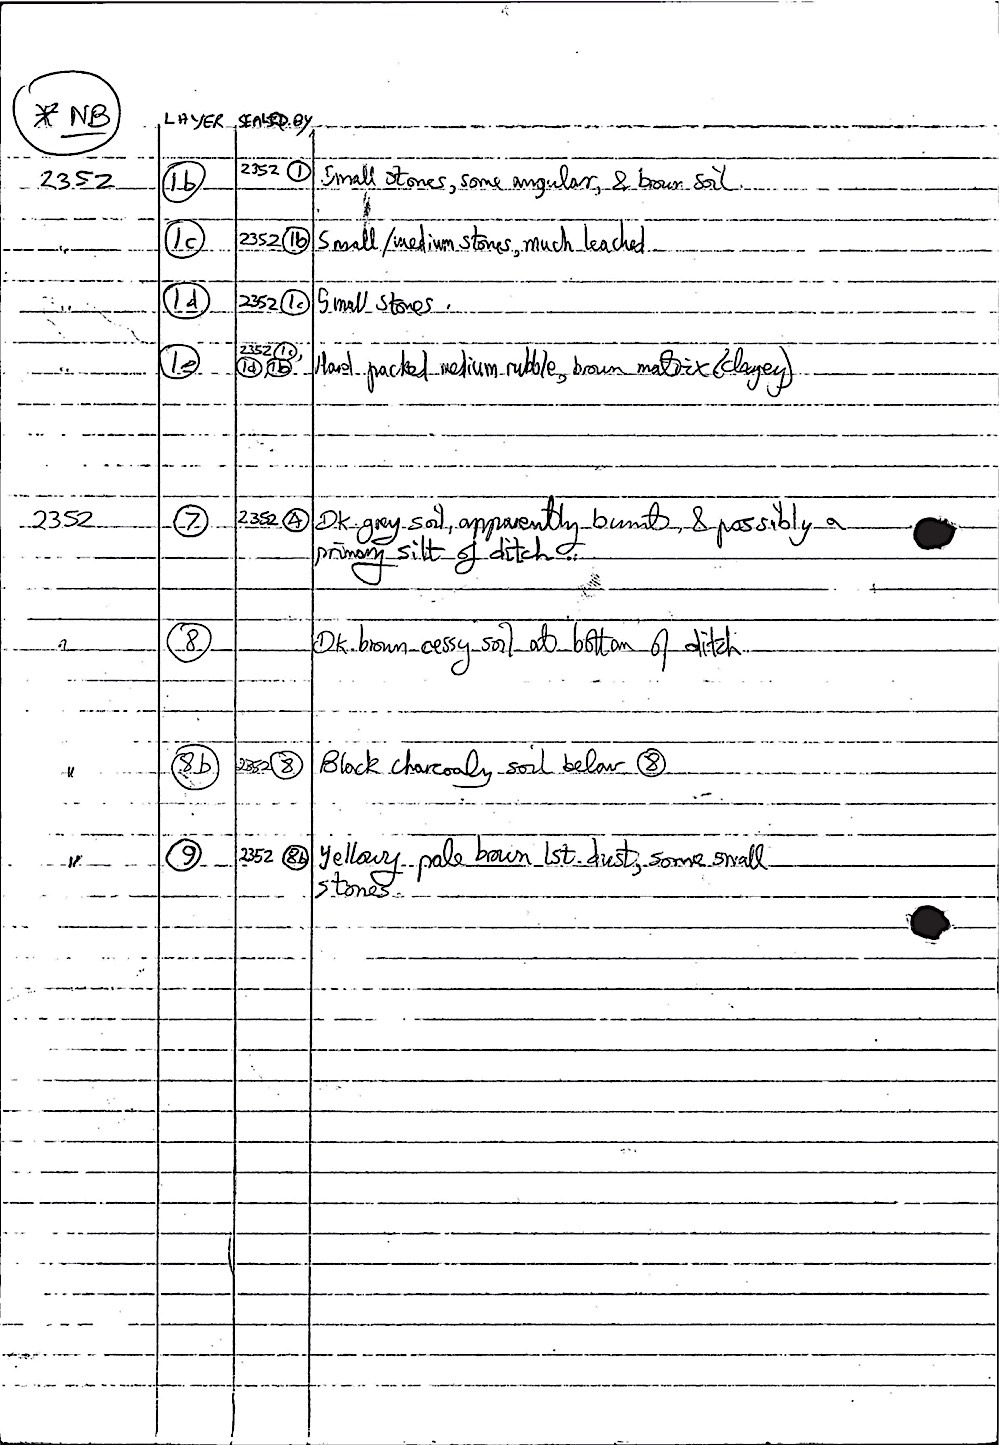 * NB
LAYER SEALED BY
2352 1b 2352 1 Small stones, some angular, & brown soil.
" 1c 2352 1b Small/medium stones, much leached
" 1d 2352 1c Small stones.
" 1e 2352 1c, 1d, 1b Hard packed medium rubble, brown matrix (clayey)
2352 7 2352 4 Dk. grey soil, apparently burnt, & possibly a
primary silt of ditch.
" 8 Dk. brown cessy soil at bottom of ditch
" 8b 2352 8 Black charcoaly soil below 8
" 9 2352 8b Yellowy pale brown lst. dust, some small
stones.